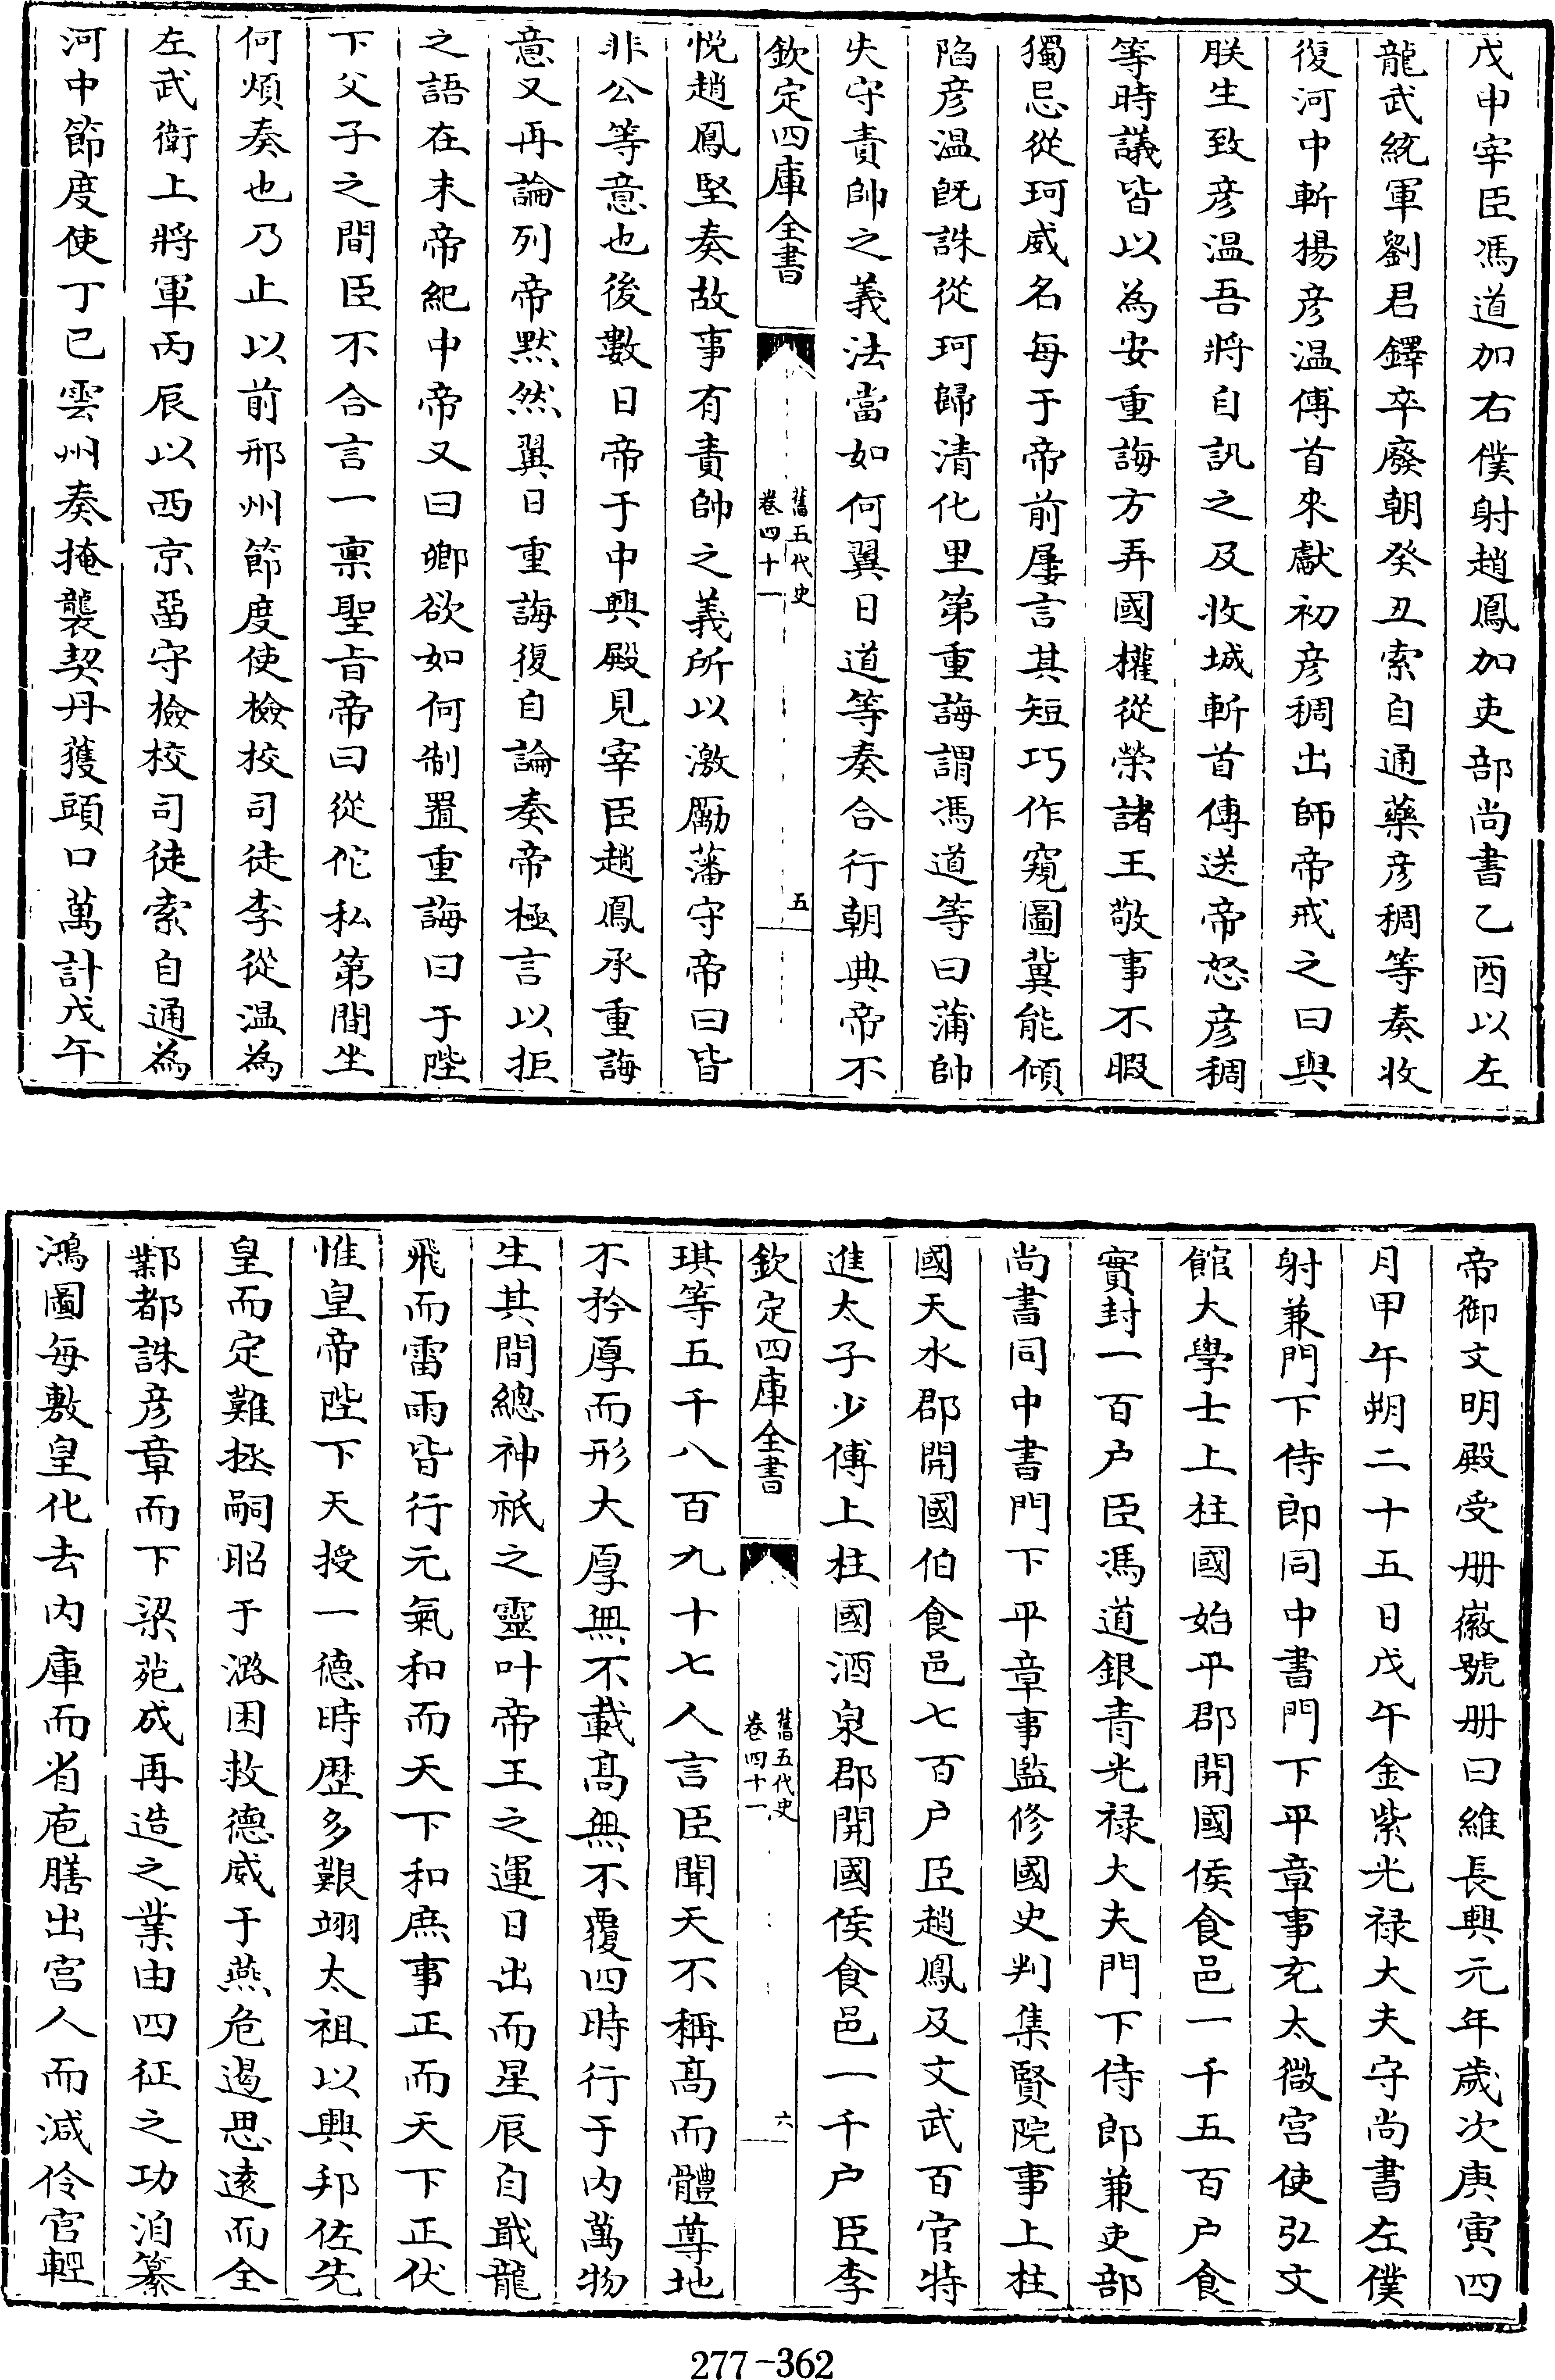 戊申宰臣馮道加右僕射趙鳳加吏部尚書乙酉以左
龍武統軍劉君鐸卒廢朝癸丑索自通藥彦稠等奏收
復河中斬楊彦温傳首來獻初彦稠出師帝戒之曰與
朕生致彦温吾將自訊之及收城斬首傳送帝怒彦稠
等時議皆以為安重誨方弄國權從榮諸王敬事不暇
獨忌從珂威名每于帝前屢言其短巧作窺圖冀能傾
陷彦温既誅從珂歸清化里第重誨謂馮道等曰蒲帥
失守責帥之義法當如何翼日道等奏合行朝典帝不
欽定四庫全書
舊五代史
卷四十一
五
悦趙鳳堅奏故事有責帥之義所以激勵藩守帝曰皆
非公等意也後數日帝于中興殿見宰臣趙鳳承重誨
意又再論列帝默然翼日重誨復自論奏帝極言以拒
之語在末帝紀中帝又曰卿欲如何制置重誨曰于陛
下父子之間臣不合言一禀聖旨帝曰從佗私第間坐
何煩奏也乃止以前邢州節度使檢校司徒李從温為
左武衛上將軍丙辰以西京畱守檢校司徒索自通為
河中節度使丁巳雲州奏掩襲契丹獲頭口萬計戊午
帝御文明殿受册徽號册曰維長興元年歲次庚寅四
月甲午朔二十五日戊午金紫光禄大夫守尚書左僕
射兼門下侍郎同中書門下平章事充太微宫使弘文
館大學士上柱國始平郡開國侯食邑一千五百户食
實封一百户臣馮道銀青光禄大夫門下侍郎兼吏部
尚書同中書門下平章事監修國史判集賢院事上柱
國天水郡開國伯食邑七百户臣趙鳳及文武百官特
進太子少傅上柱國酒泉郡開國侯食邑一千户臣李
欽定四庫全書
舊五代史
卷四十一
六
琪等五千八百九十七人言臣聞天不稱高而體尊地
不矜厚而形大厚無不載高無不覆四時行于内萬物
生其間總神祇之靈叶帝王之運日出而星辰自戢龍
飛而雷雨皆行元氣和而天下和庶事正而天下正伏
惟皇帝陛下天授一德時歴多艱翊太祖以興邦佐先
皇而定難拯嗣昭于潞困救德威于燕危遏思遠而全
鄴都誅彦章而下梁苑成再造之業由四征之功洎纂
鴻圖每敷皇化去内庫而省庖膳出宫人而減伶官輕
277-362